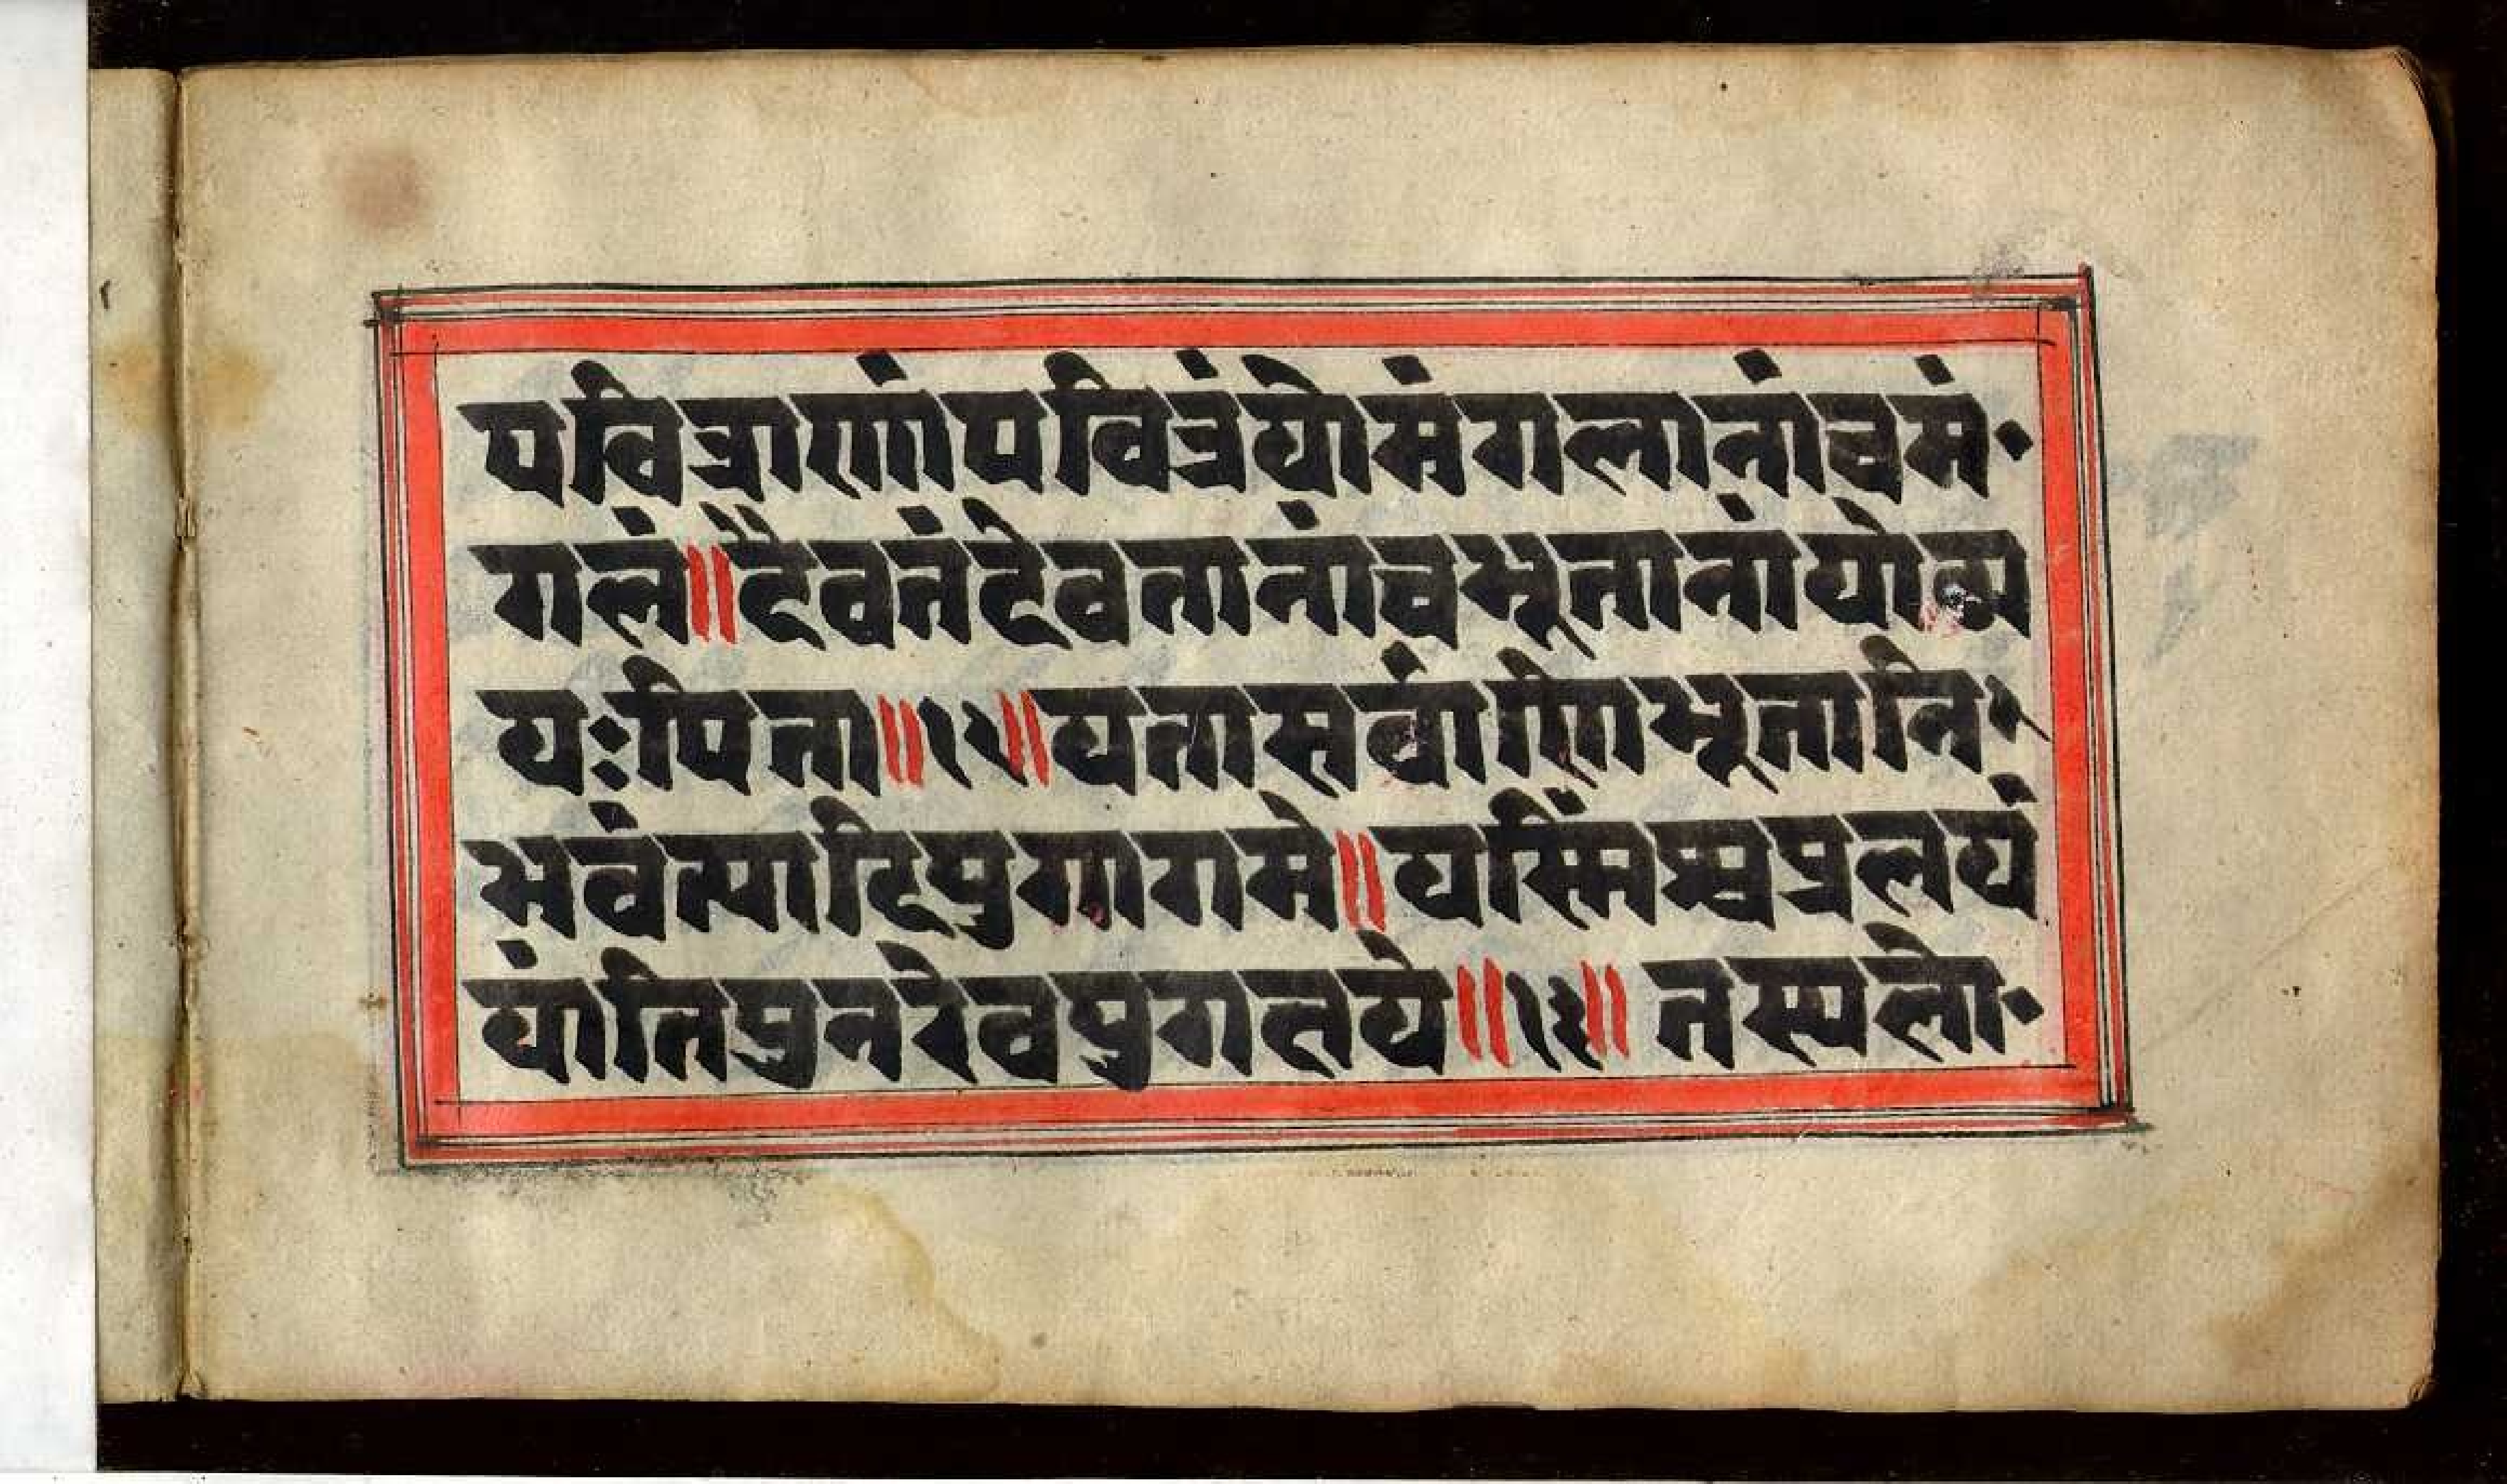 पवित्राणांपवित्रंयोमंगलानांचमं॰
गलं॥दैवतंदेवतानांचभूतानांयोव्य
यःपिता॥१२॥यतःसर्वाणिभूतानि॰
भवंत्यादियुगागमे॥यस्मिंश्चप्रलयं
यांतिपुनरेवयुगक्षये॥१३॥तस्यलो॰